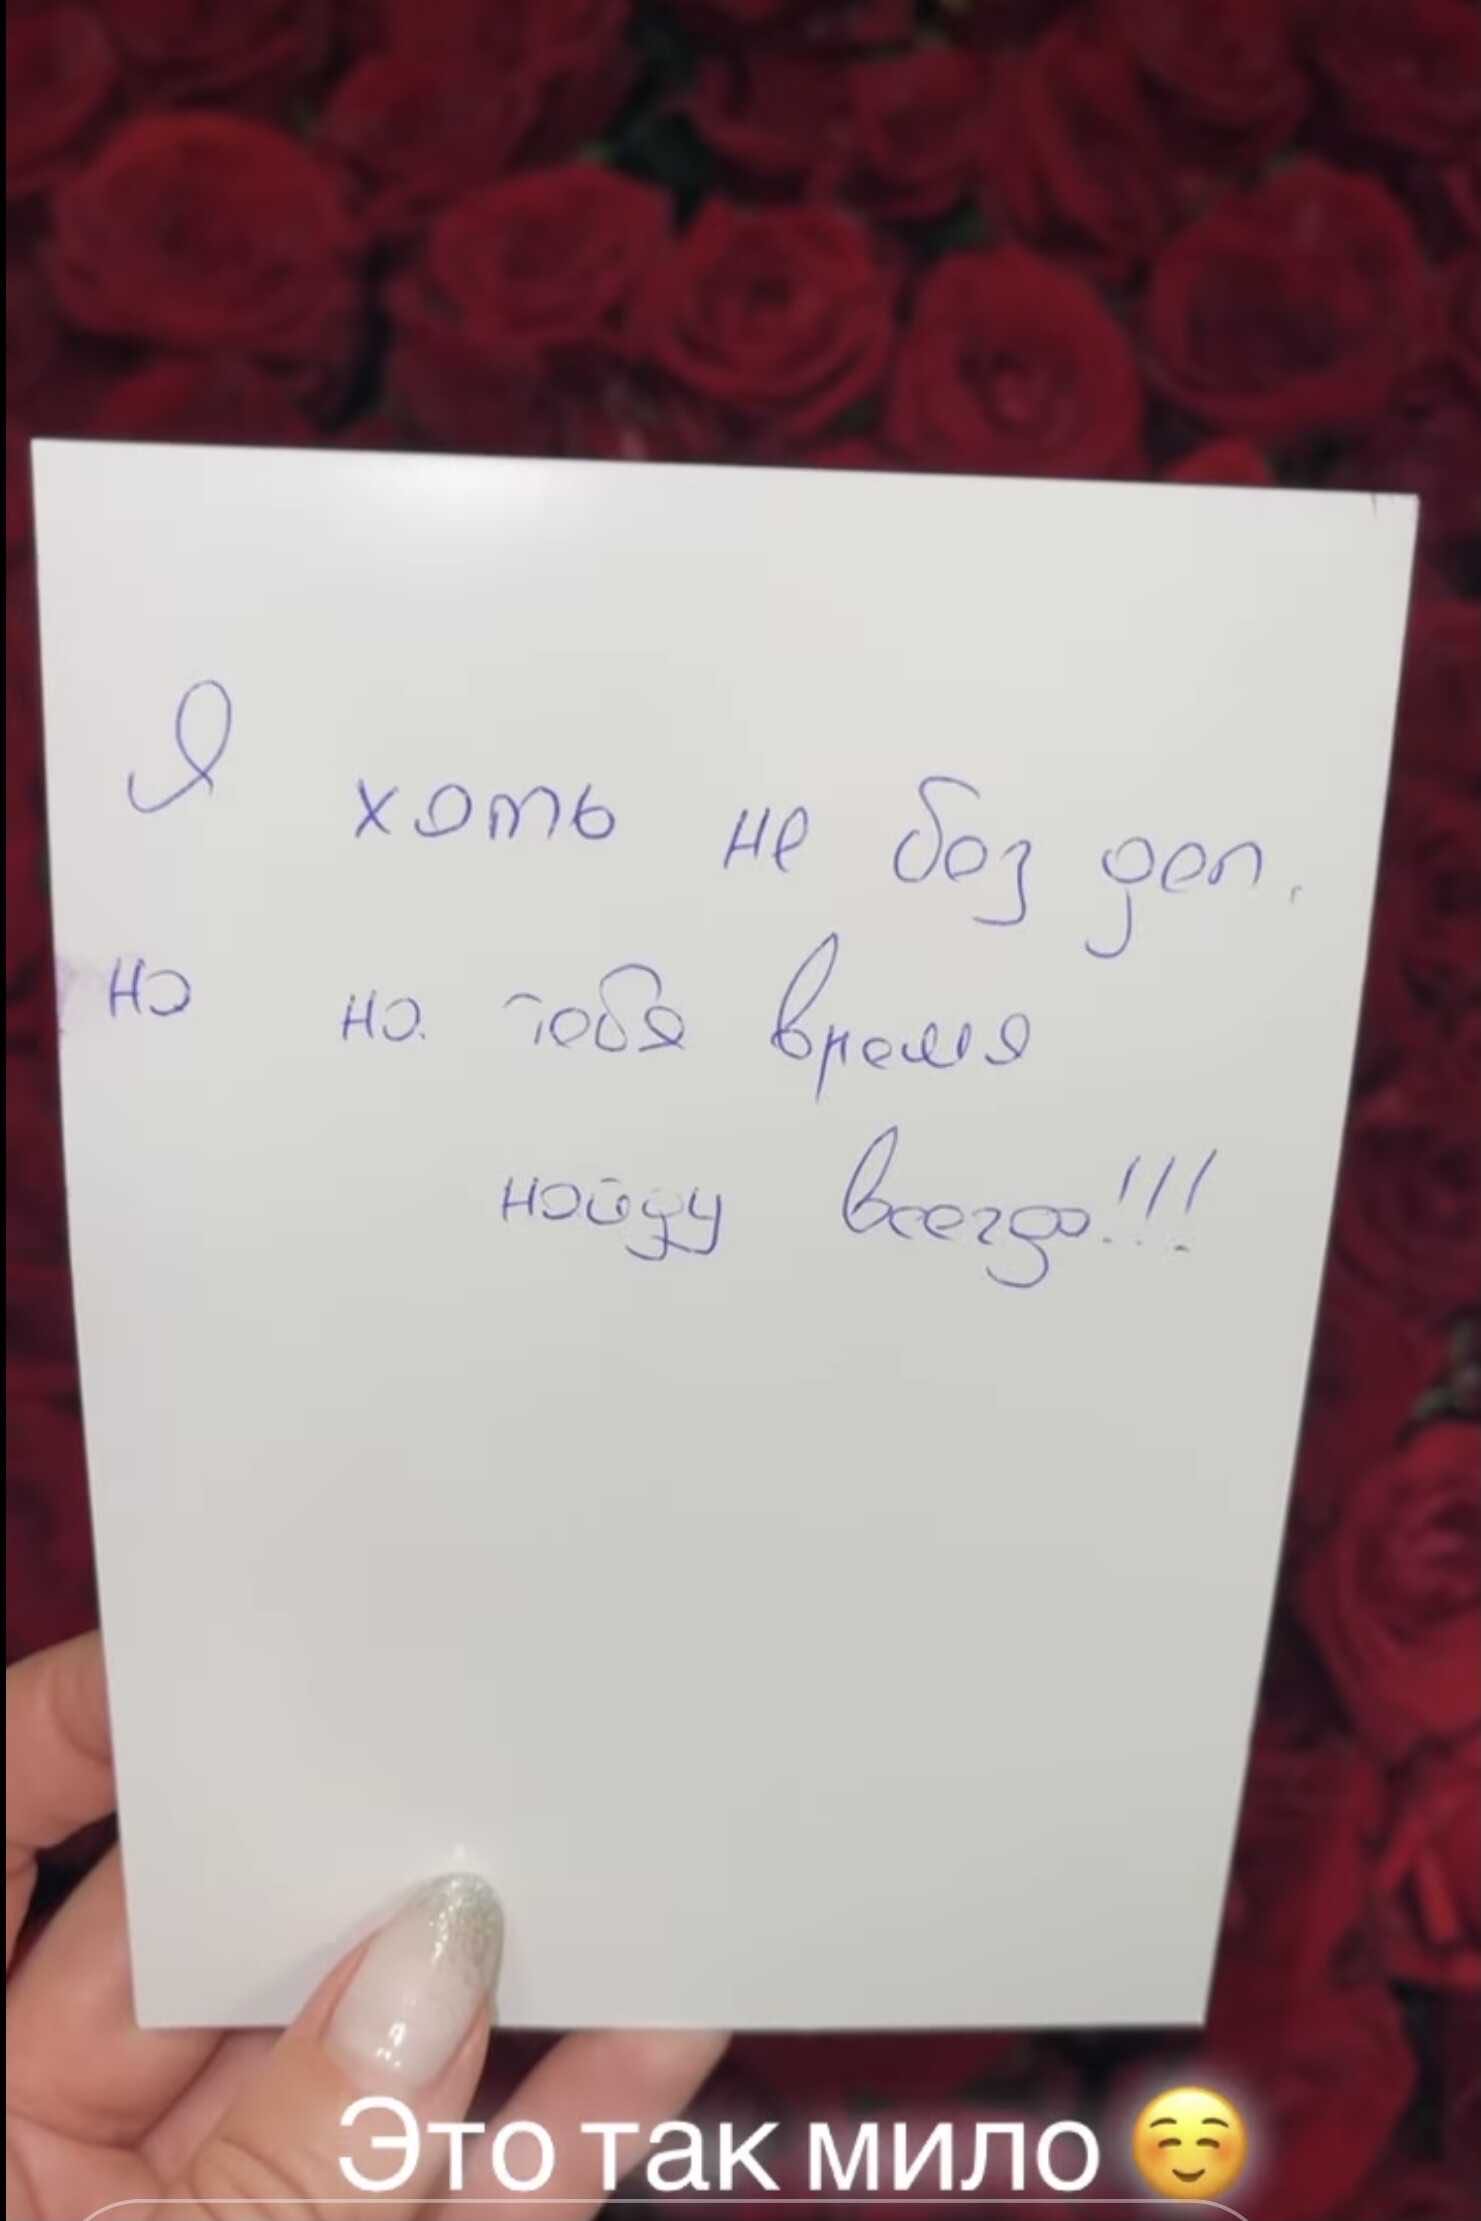 Я хоть не без дел,
но на тебя время
найду всегда!!!
Это так мило ☺️